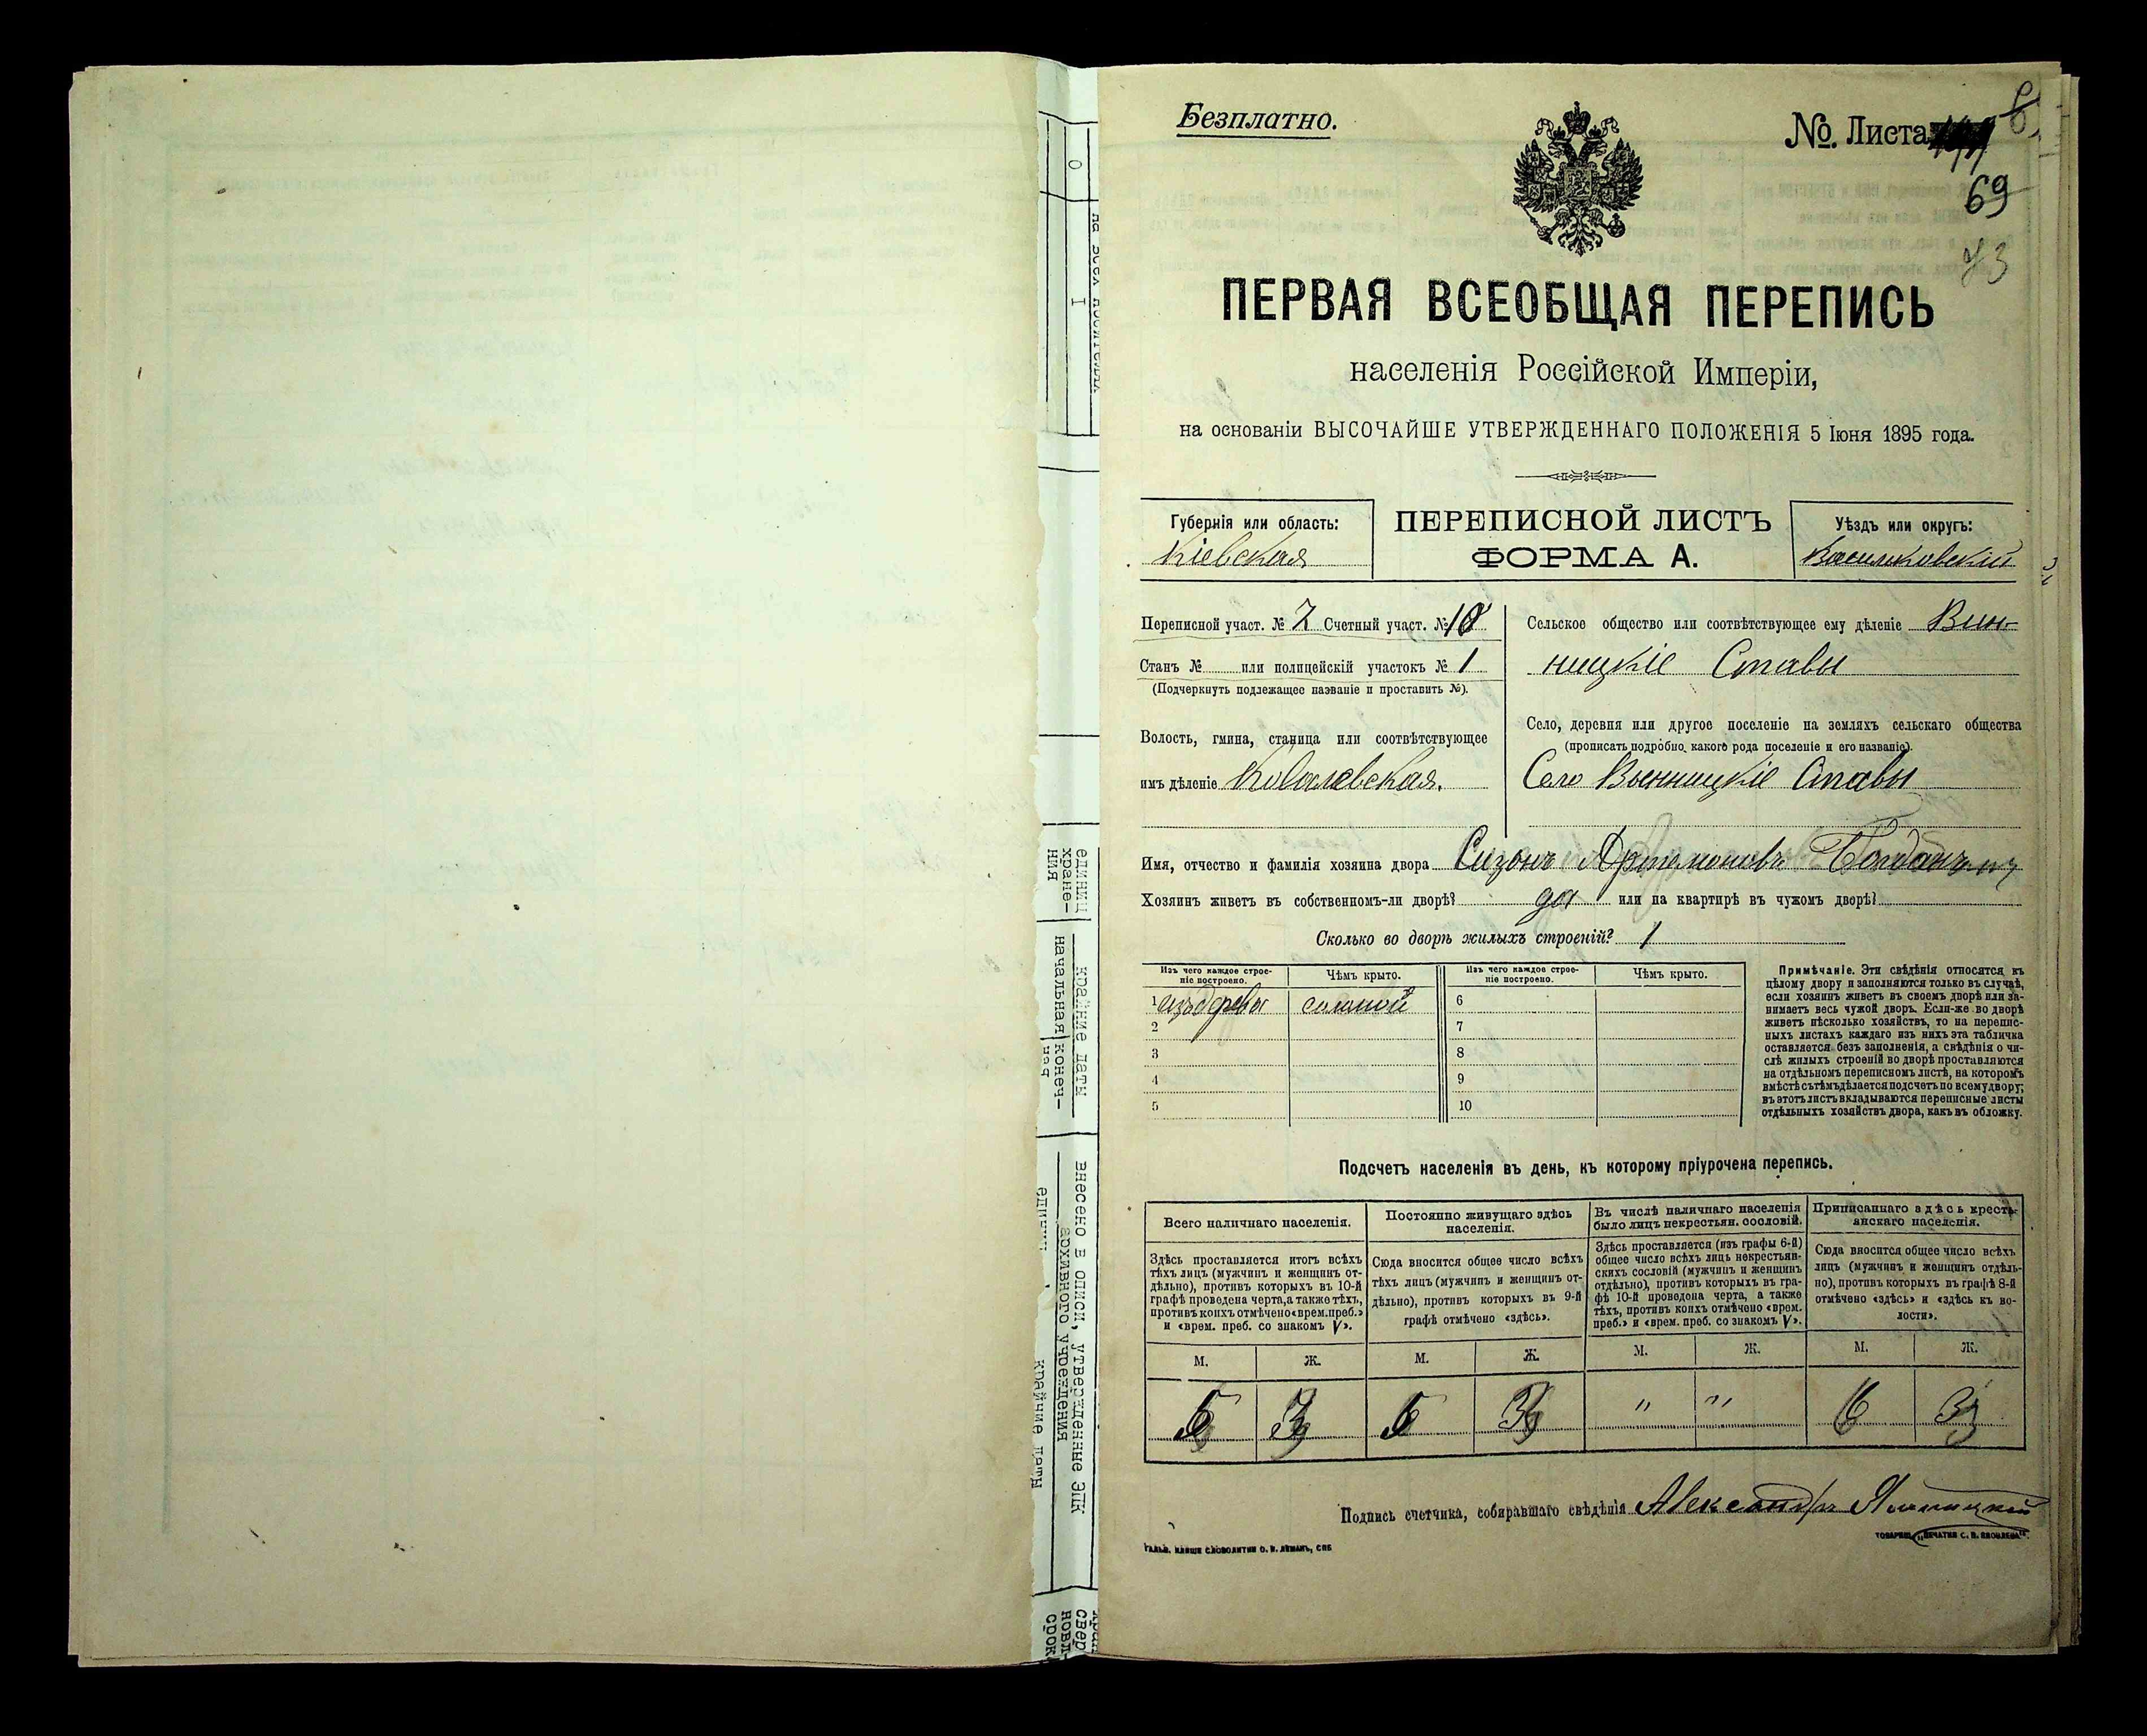 Безплатно.
№. Листа
69
73
ПЕРВАЯ ВСЕОБЩАЯ ПЕРЕПИСЬ
населенія Россійской Имперіи,
на основаніи ВЫСОЧАЙШЕ УТВЕРЖДЕННАГО ПОЛОЖЕНІЯ 5 Іюня 1895 года.
Губернія или область:
Кіевская
ПЕРЕПИСНОЙ ЛИСТЪ
ФОРМА А.
Уѣздъ или округъ:
Васильковскій
Переписной участ. № 7 Счетный участ. № 18
Станъ № или полицейскій участокъ № 1
(Подчеркнуть подлежащее названіе и проставить №).
Волость, гмина, станица или соотвѣтствующее
имъ дѣленіе Ковалевская.
Сельское общество или соотвѣтствующее ему дѣленіе Вин-
ницкіе Ставы
Село, деревня или другое поселеніе на земляхъ сельскаго общества
(прописать подробно, какого рода поселеніе и его названіе).
Село Винницкіе Ставы
Имя, отчество и фамилія хозяина двора Сизонъ Артемоновъ
Хозяинъ живетъ въ собственномъ-ли дворѣ? да или на квартирѣ въ чужомъ дворѣ?
Сколько во дворѣ жилыхъ строеній? 1
Изъ чего каждое строе-
ніе построено.
Чѣмъ крыто.
Изъ чего каждое строе-
ніе построено.
Чѣмъ крыто.
1 изъ дерева соломой 6
2 7
3 8
4 9
5 10
Примѣчаніе. Эти свѣдѣнія относятся къ
цѣлому двору и заполняются только въ случаѣ,
если хозяинъ живетъ въ своемъ дворѣ или за-
нимаетъ весь чужой дворъ. Если-же во дворѣ
живетъ нѣсколько хозяйствъ, то на перепис-
ныхъ листахъ каждаго изъ нихъ эта табличка
оставляется безъ заполненія, а свѣдѣнія о чи-
слѣ жилыхъ строеній во дворѣ проставляются
на отдѣльномъ переписномъ листѣ, на которомъ
вмѣстѣ съ тѣмъ дѣлается подсчетъ по всему двору;
въ этотъ листъ вкладываются переписные листы
отдѣльныхъ хозяйствъ двора, какъ въ обложку.
Подсчетъ населенія въ день, къ которому пріурочена перепись.
Всего наличнаго населенія.
Постоянно живущаго здѣсь
населенія.
Въ числѣ наличнаго населенія
было лицъ некрестьян. сословій.
Приписаннаго здѣсь кресть-
янскаго населенія.
Здѣсь проставляется итогъ всѣхъ
тѣхъ лицъ (мужчинъ и женщинъ от-
дѣльно), противъ которыхъ въ 10-й
графѣ проведена черта, а также тѣхъ,
противъ коихъ отмѣчено «врем. преб.»
и «врем. преб. со знакомъ V».
Сюда вносится общее число всѣхъ
тѣхъ лицъ (мужчинъ и женщинъ от-
дѣльно), противъ которыхъ въ 9-й
графѣ отмѣчено «здѣсь».
Здѣсь проставляется (изъ графы 6-й)
общее число всѣхъ лицъ некрестьян-
скихъ сословій (мужчинъ и женщинъ
отдѣльно), противъ которыхъ въ гра-
фѣ 10-й проведена черта, а также
тѣхъ, противъ коихъ отмѣчено «врем.
преб.» и «врем. преб. со знакомъ V».
Сюда вносится общее число всѣхъ
лицъ (мужчинъ и женщинъ отдѣль-
но), противъ которыхъ въ графѣ 8-й
отмѣчено «здѣсь» и «здѣсь къ во-
лости».
М. Ж. М. Ж. М. Ж. М. Ж.
5 3 5 3 " " 6 3
Подпись счетчика, собиравшаго свѣдѣнія Александръ
ГАЛЬВ. КЛИШЕ СЛОВОЛИТНИ О. И. ЛЕМАНЪ, СПБ
ТОВАРИЩ. „ПЕЧАТНИ С. П. ЯКОВЛЕВА".
единиц
хране-
ния
крайние даты
начальная
конеч-
ная
внесено в описи, утвержденные ЭПК
архивного учреждения
единиц
крайние даты